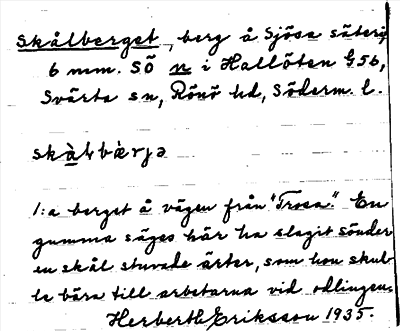 Skålberget, berg å Sjösa säteri,
6 mm. SÖ n i Hallöten G56,
Svärta sn, Rönö hd, Söderm. l.
1:a berget å vägen från "Trosa". En
gumma säges här ha slagit sönder
en skål stuvade ärter, som hon skul-
le bära till arbetarna vid odlingen.
Herbert Eriksson 1935.